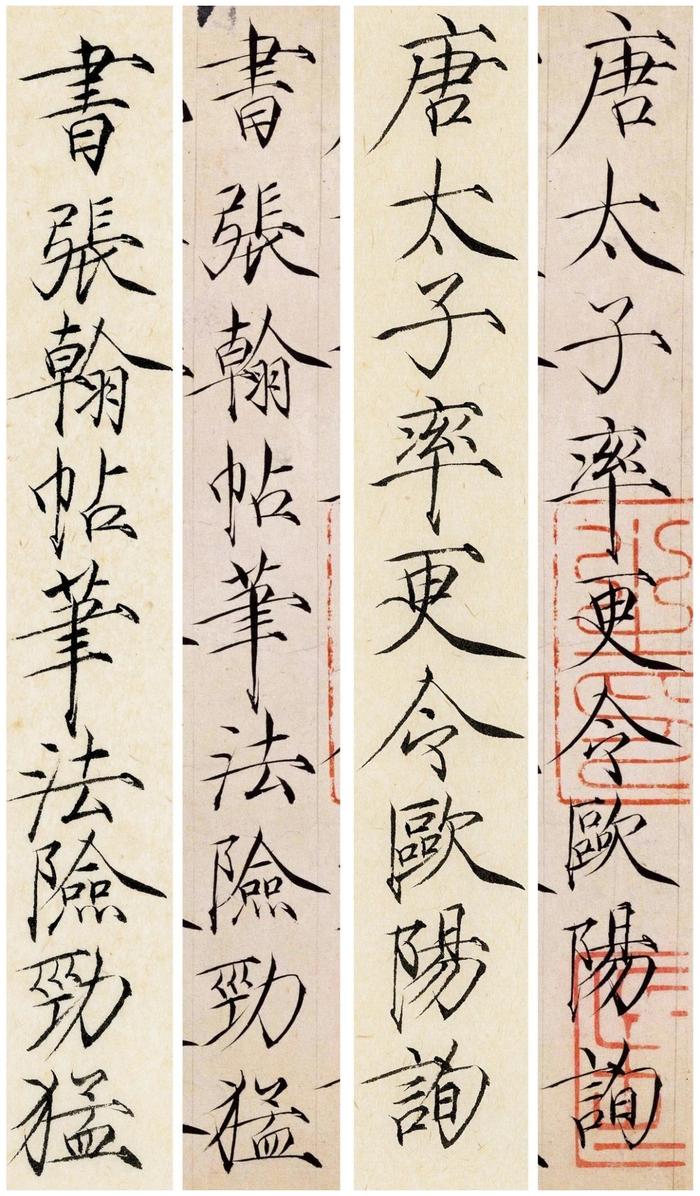 唐太子率更令歐陽詢
唐太子率更令歐陽詢
書張翰帖筆法險勁猛
書張翰帖筆法險勁猛